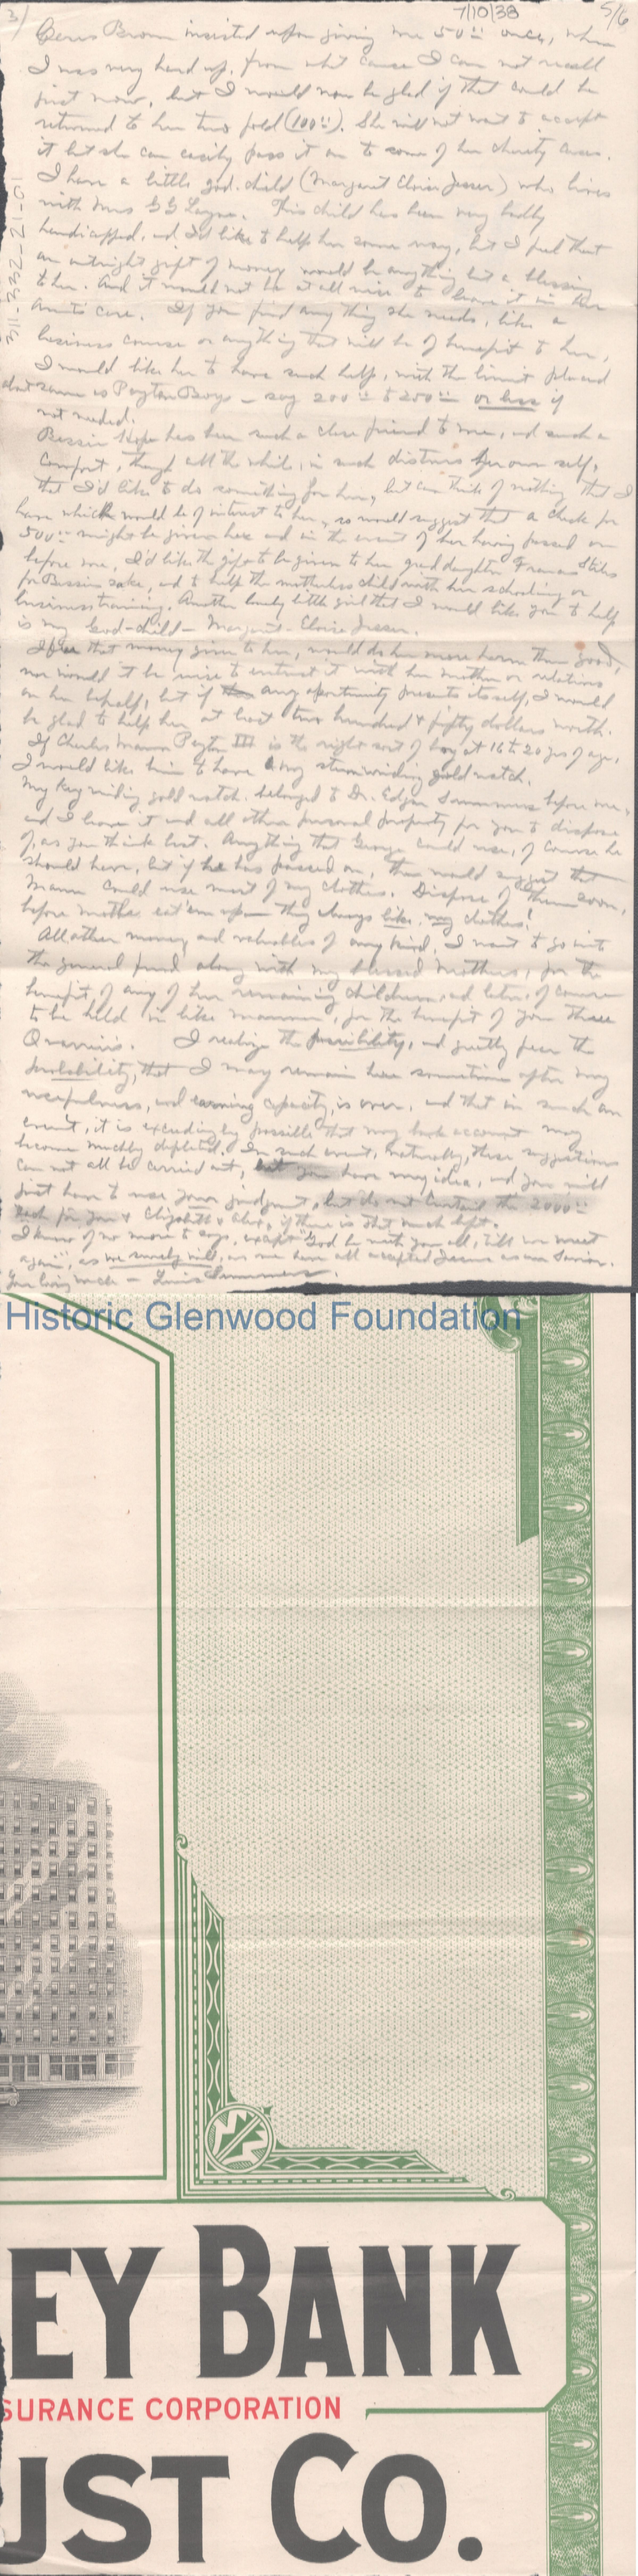 3/ 7/10/38 5/6
311-332-21-01
Brown insisted upon giving me 50.00 once, when
I was very hard up, from what cause I can not recall
just now, but I would now be glad if that could be
returned to her two fold (100.00). She will not want to accept
it but she can easily pass it on to some of her charity cases.
I have a little god-child (Margaret Jesser) who lives
with Mrs G G Layne. This child has been very badly
handicapped, and I'd like to help her some way, but I feel that
an outright gift of money would be anything but a blessing
to her. And it would not be at all wise to leave it in her
aunt's care. If you find anything she needs, like a
business course or anything that will be of benefit to her,
I would like her to have such help, with the limit placed
about same as Peyton Boys - say 200.00 to 250.00 or less if
not needed.
Bessie Hope has been such a close friend to me, and such a
comfort, though all the while, in such distress her own self,
that I'd like to do something for her, but can think of nothing that I
have which would be of interest to her, so would suggest that a check for
500.00 might be given her and in the event of her having passed on
before me, I'd like the gift to be given to her grand daughter Frances Stiles
for Bessie's sake, and to help the motherless child with her schooling or
business training. Another lovely little girl that I would like you to help
is my God-child - Margaret Jesser.
I fear that money given to her, would do her more harm than good,
nor would it be wise to entrust it with her mother or relations
on her behalf, but if any opportunity presents itself, I would
be glad to help her at least two hundred & fifty dollars worth.
If Charles Mann Peyton III is the right sort of boy at 16 to 20 yrs of age,
I would like him to have my stem winding gold watch.
My key winding gold watch belonged to Dr. Edgar Summers before me,
and I leave it and all other personal property for you to dispose
of, as you think best. Anything that George could use, of course he
should have, but if he has passed on, then would suggest that
Mann could use most of my clothes. Dispose of them soon,
before moths eat 'em up - they always like my clothes!
All other money and valuables of any kind, I want to go into
the general fund along with my blessed Mother's, for the
benefit, of any of her remaining children, and later, of course
to be held in like manner, for the benefit of you three
Quarriers. I realize the possibility, and greatly fear the
probability, that I may remain here sometime after my
usefulness, and earning capacity, is over, and that in such an
event, it is exceedingly possible that my bank account may
become muchly depleted. In such event, naturally, these suggestions
can not all be carried out, but you have my idea, and you will
just have to use your judgment, but do not curtail the 2000.00
each for you & Elizabeth & Alex, if there is that much left.
I know of no more to say, except "God be with you all, till we meet
again", as we surely will, as we have all accepted Jesus as our Savior.
Your loving uncle - Lewis Summers.
Historic Glenwood Foundation
EY BANK
SURANCE CORPORATION
UST CO.